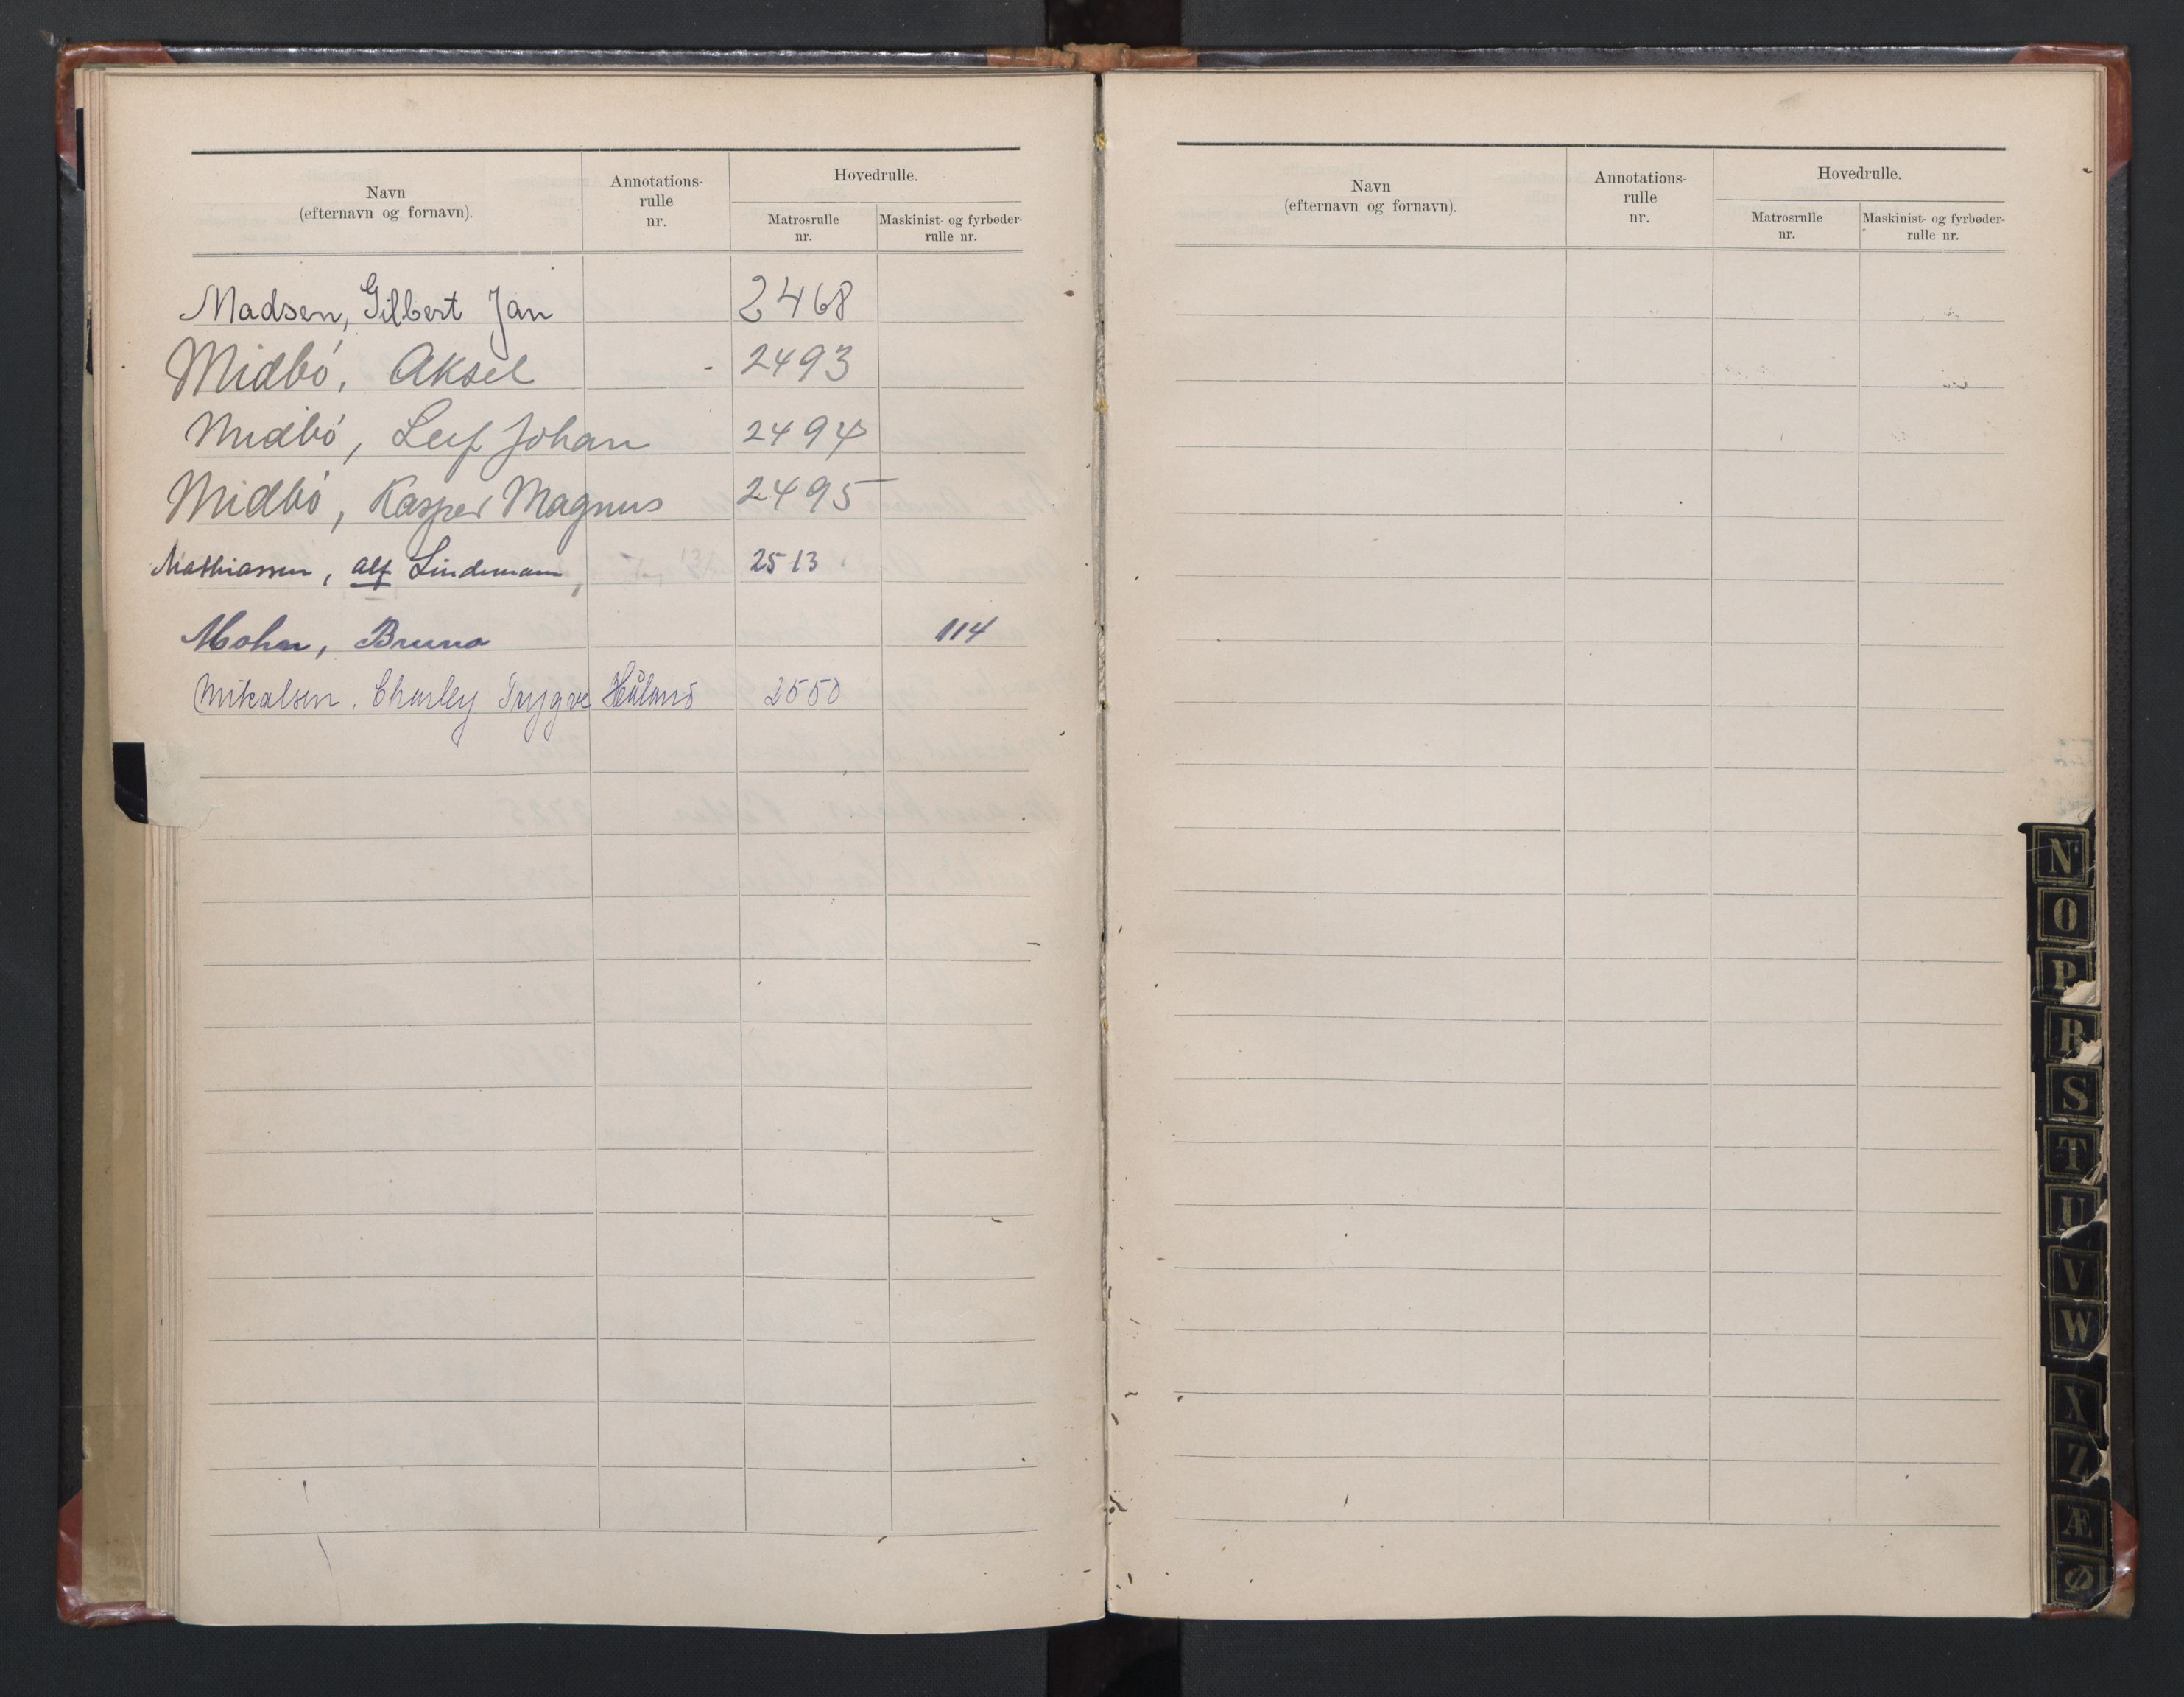 Navn
(efternavn og fornavn).
Annotations-
rulle
nr.
Hovedrulle.
Matrosrulle
nr.
Maskinist- og fyrbøder-
rulle nr.
Madsen, Gilbert Jan 2468
Midbó, Aksel - 2493
Midbó, Leif Johan 2494
Midbó, Kasper Magnus 2495
Mathiassen, Alf Lindemann, 2513
Mohn, Bruno 114
Mikalsen. Charley Trygve Håland 2550
Navn
(efternavn og fornavn).
Annotations-
rulle
nr.
Hovedrulle.
Matrosrulle
nr.
Maskinist- og fyrbøder-
rulle nr.
N
O
P
R
S
T
U
V
W
X
Z
Æ
Ø